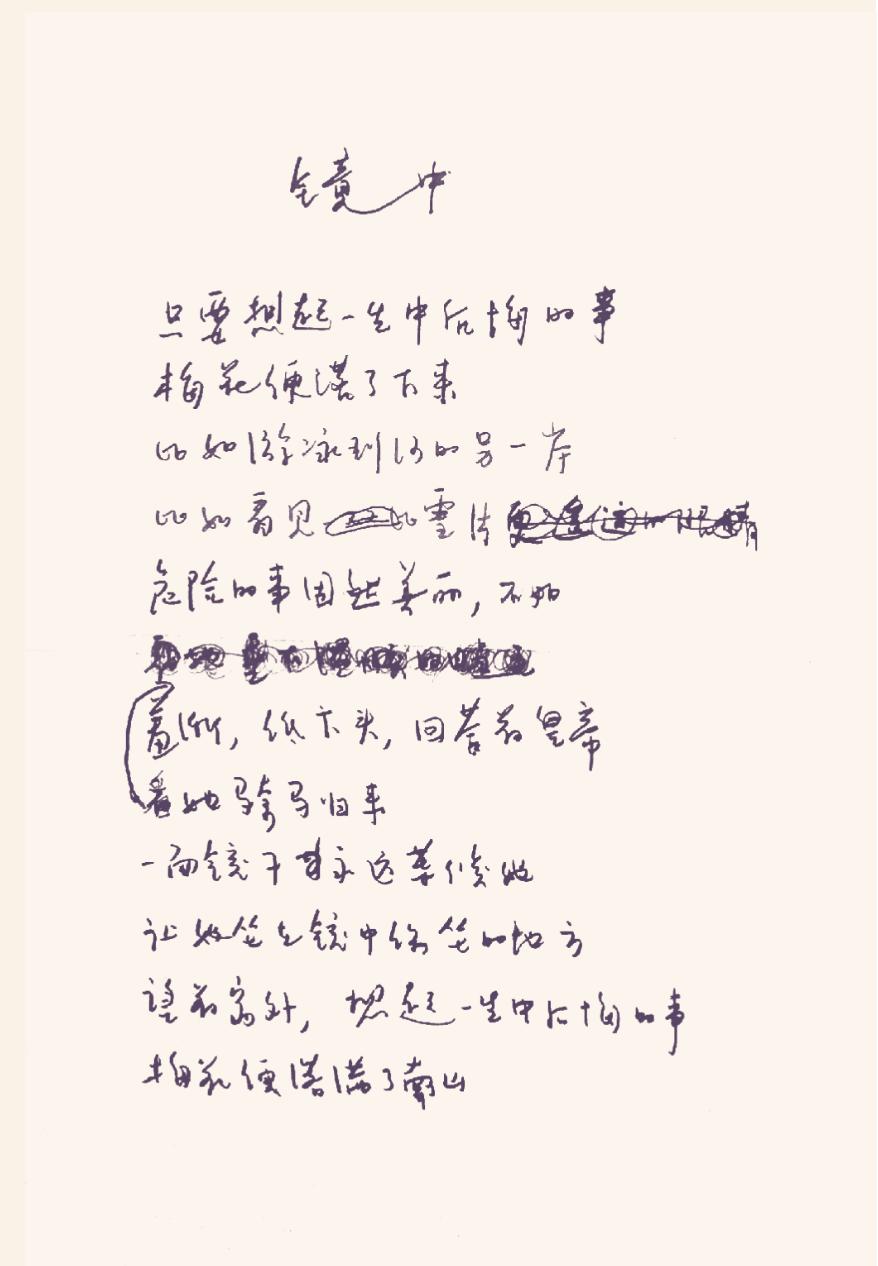 镜中
只要想起一生中后悔的事
梅花便落了下来
比如游泳到河的另一岸
比如看见比雪
危险的事固然美丽，不如
羞惭，低下头，回答着皇帝
看她骑马归来
一面镜子永远等候她
让她坐在镜中坐的地方
望着窗外，想起一生中后悔的事
梅花便落满了南山